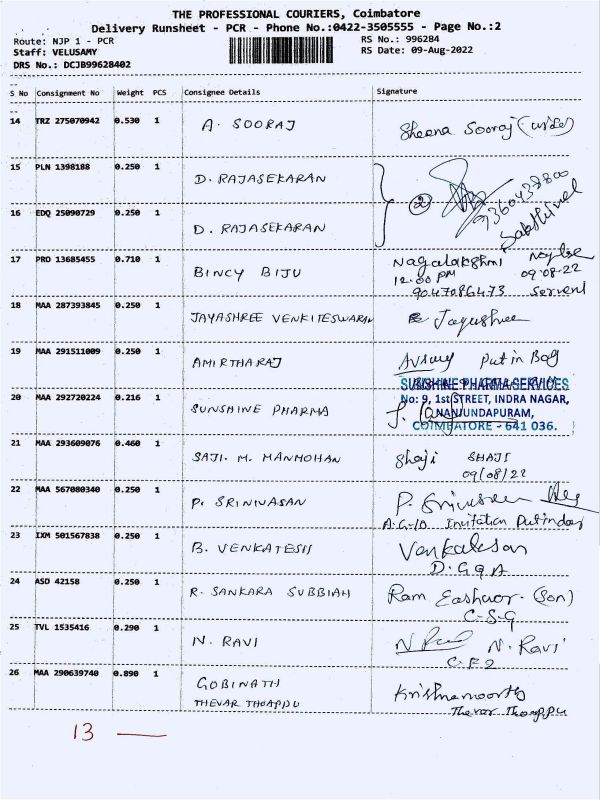 THE PROFESSIONAL COURIERS, Coimbatore
Delivery Runsheet - PCR - Phone No.:0422-3505555 - Page No.:2
Route: NJP 1 - PCR
RS No.: 996284
Staff: VELUSAMY
RS Date: 09-Aug-2022
DRS No.: DCJB99628402
S No Consignment No Weight PCS Consignee Details Signature
14 TRZ 275070942 0.530 1 A. SOORAJ Sheena Sooraj (wife)
15 PLN 1398188 0.250 1 D. RAJASEKARAN
2 9360437800
Sakthivel
16 EDQ 25090729 0.250 1 D. RAJASEKARAN
17 PRO 13685455 0.710 1 BINCY BIJU Nagalakshmi
12.00 PM 09.08.22
9047086473 Servent
18 MAA 287393845 0.250 1 JAYASHREE VENKITESWARAN Jayashree
19 MAA 291511009 0.250 1 AMIRTHARAJ Put in Bag
20 MAA 292720224 0.216 1 SUNSHINE PHARMA
SUNSHINE PHARMA SERVICES
No: 9, 1st STREET, INDRA NAGAR,
NANJUNDAPURAM,
COIMBATORE - 641 036.
21 MAA 293609076 0.460 1 SAJI. M. MANMOHAN Shaji SHAJI
09/08/22
22 MAA 567080340 0.250 1 P. SRINIVASAN P. Srinivasan
A-G-10 Invitation Put in door
23 IXM 501567838 0.250 1 B. VENKATESH Venkatesan
D.G9A
24 ASD 42158 0.250 1 R. SANKARA SUBBIAH Ram Eashwor. (Son)
C-S-G
25 TVL 1535416 0.290 1 N. RAVI N. Ravi
C-F2
26 MAA 290639740 0.890 1 GOBINATH Krishnamoorthy
THEVAR THOAPPU Thevar Thoappu
13